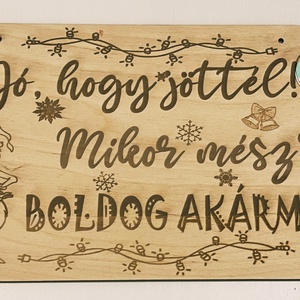 Jó, hogy jöttél!
Mikor mész?
BOLDOG AKÁRM